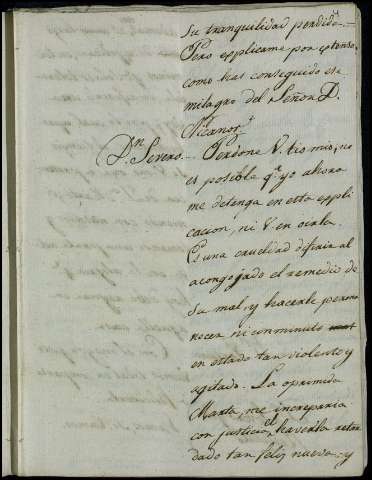 su tranquilidad perdida.
Pero esplicame por extenso,
como has conseguido ese
milagro del Señor D.
Nicanor.
Dn. Severo.... Perdone V. tio mio, no
es posible qe. yo ahora
me detenga en esta espli
cacion, ni V. en oirla.
Es una crueldad diferir al
acongojado el remedio de
su mal, y hacerle perma
necer ni un minuto
en estado tan violento y
agitado. La oprimida
Marta, me increparia
con justicia el haverla retar
dado tan feliz nueva; y